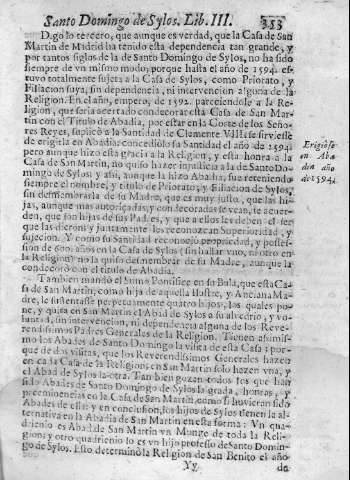 Santo Domingo de Sylos. Lib. III. 353
Digo lo tercero, que aunque es verdad, que la Casa de San
Martin de Madrid ha tenido esta dependencia tan grande, y
por tantos siglos de la de Santo Domingo de Sylos, no ha sido
siempre de vn mismo modo, porque hasta el año de 1594. es-
tuvo totalmente sujeta a la Casa de Sylos, como Priorato, y
Filiacion suya, sin dependencia, ni intervencion alguna de la
Religion. En el año, empero, de 1592. pareciendole a la Re-
ligion, que seria acertado condecorar esta Casa de San Mar-
tin con el Titulo de Abadia, por estar en la Corte de los Seño-
res Reyes, suplicò a la Santidad de Clemente VIII. se sirviesse
de erigirla en Abadia: concediòlo su Santidad el año de 1594.
pero aunque hizo esta gracia a la Religion, y esta honra a la
Casa de San Martin, no quiso hazer injusticia a la de Santo Do-
mingo de Sylos; y assi, aunque la hizo Abadia, fue reteniendo
siempre el nombre, y titulo de Priorato, y Filiacion de Sylos,
sin desmembrarla de su Madre, que es muy justo, que las hi-
jas, aunque mas autorizadas, y condecoradas se vean, se acuer-
den, que son hijas de sus Padres, y que a ellos les deben el ser
que las dieron, y juntamente les reconozcan Superioridad, y
sujecion. Y como su Santidad reconociò propriedad, y posses-
sion de 500. años en la Casa de Sylos (sin hallar vno, ni otro en
la Religion) no la quiso desmembrar de su Madre, aunque la
condecorò con el titulo de Abadia.
Erigiòse
en Aba
dia año
de 1594.
Tambien mandò el Sumo Pontifice en su Bula, que esta Ca-
sa de San Martin, como hija de aquella Ilustre, y Anciana Ma-
dre, le sustentasse perpetuamente quatro hijos, los quales po-
ne, y quita en San Martin el Abad de Sylos a su alvedrio, y vo-
luntad, sin intervencion, ni dependencia alguna de los Reve-
rendissimos Padres Generales de la Religion. Tienen assimis-
mo los Abades de Santo Domingo la visita de esta Casa: por-
que de dos visitas, que los Reverendissimos Generales hazen
en cada Casa de la Religion, en San Martin solo hazen vna, y
el Abad de Sylos la otra. Tambien gozan todos los que han
sido Abades de Santo Domingo de Sylos la grada, honras, y
preeminencias en la Casa de San Martin, como si huvieran sido
Abades de ella: y en conclusion, los hijos de Sylos tienen la al-
ternativa en la Abadia de San Martin en esta forma: Vn qua-
drienio es Abad de San Martin vn Monge de toda la Reli-
gion; y otro quadrienio lo es vn hijo professo de Santo Domin-
go de Sylos. Esto determinò la Religion de San Benito el año
Yy de